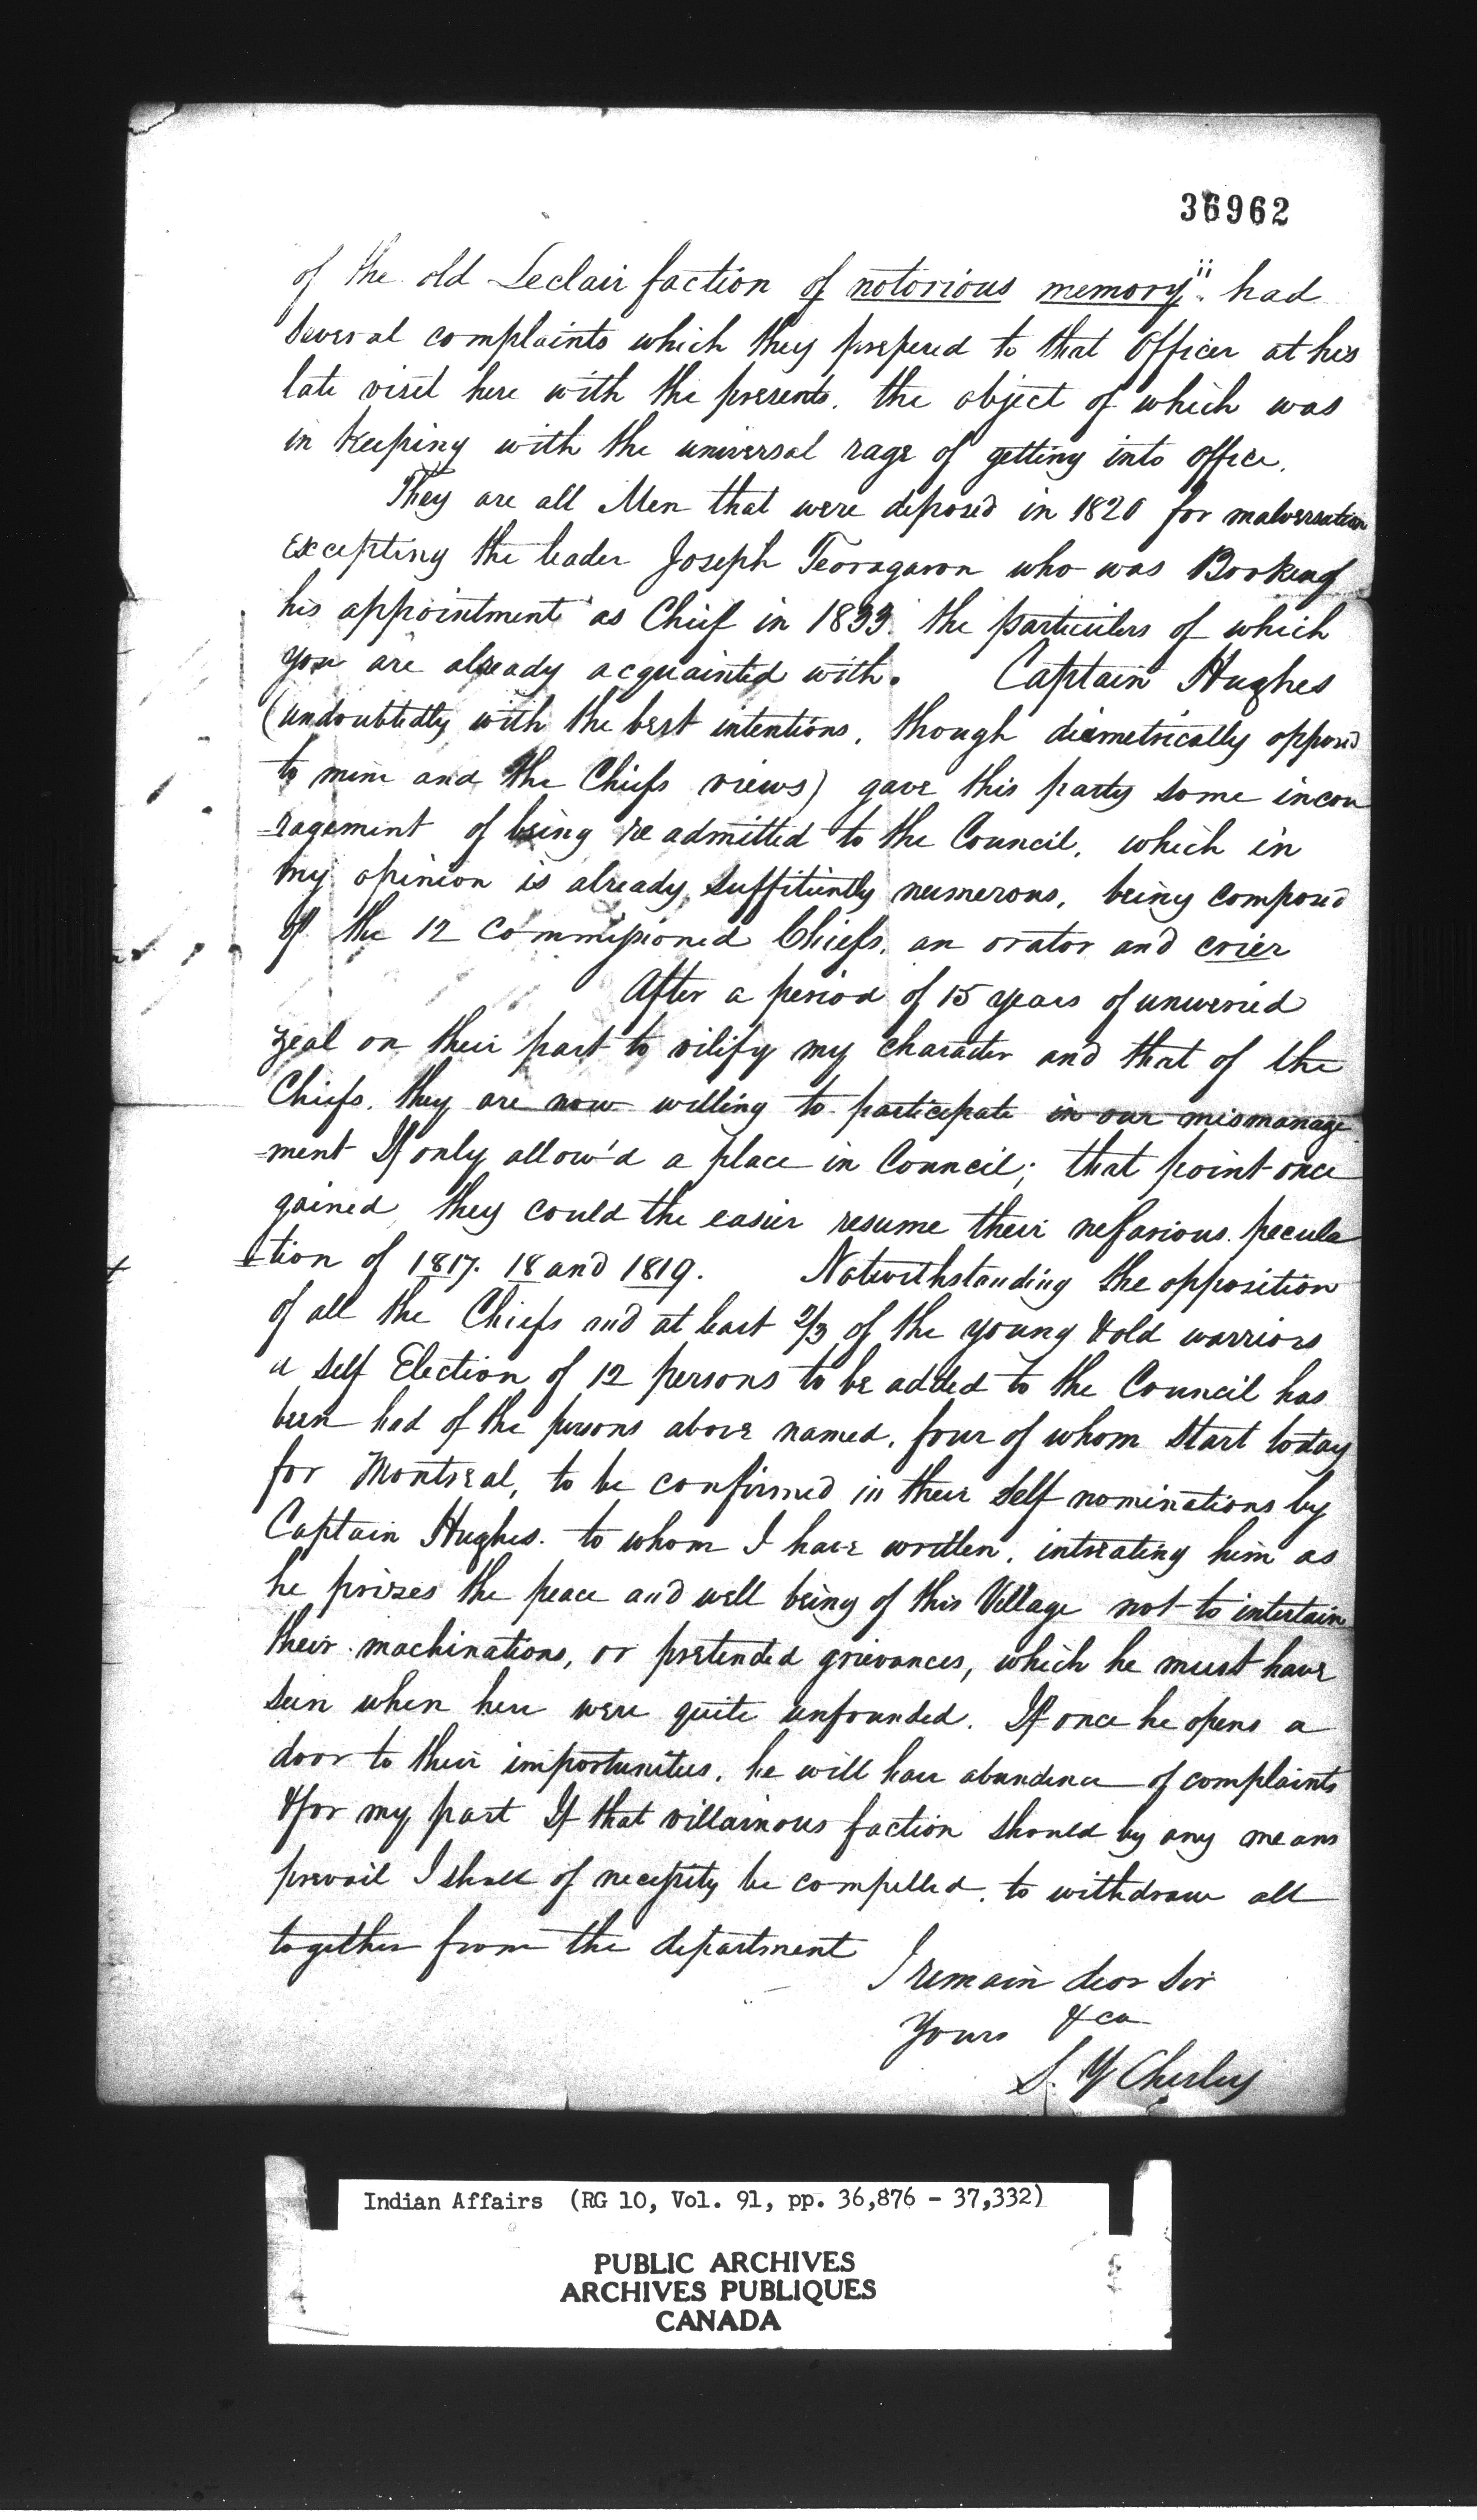 36962
of the old Leclair faction of notorious memory" had
several complaints which they prefered to that Officer at his
late visit here with the presents. the object of which was
in keeping with the universal rage of getting into office.
They are all Men that were deposed in 1820 for malversation
excepting the leader Joseph who was
his appointment as Chief in 1833. the particulers of which
you are already acquainted with. Captain Hughes
(undoubtedly with the best intentions, though diametrically opposed
to mine and the Chiefs views) gave this party some incou
=ragement of being re admitted to the Council, which in
my opinion is already suffitiently numerous, being composed
of the 12 Commissioned Chiefs, an orator and crier
After a period of 15 years of unweried
zeal on their part to vilify my character and that of the
Chiefs. they are now willing to participate in our mismanage
=ment If only allow'd a place in Council; that point once
gained they could the easier resume their nefarious pecula
=tion of 1817. 18 and 1819. Notwithstanding the opposition
of all the Chiefs and at least 2/3 of the young & old warriors
a self Election of 12 persons to be added to the Council has
been had of the persons above named, four of whom start today
for Montreal, to be confirmed in their self nominations by
Captain Hughes. to whom I have written, intreating him as
he prizes the peace and well being of this Village not to intertain
their machinations, or pretended grievances, which he must have
seen when here were quite unfounded. If once he opens a
door to their importunities, he will have abundence of complaints
& for my part If that villainous faction should by any means
prevail I shall of necessity be compelled, to withdraw all
together from the department
I remain dear Sir
Yours &ca
S. Y Chesley
Indian Affairs (RG 10, Vol. 91, pp. 36,876 - 37,332)
PUBLIC ARCHIVES
ARCHIVES PUBLIQUES
CANADA